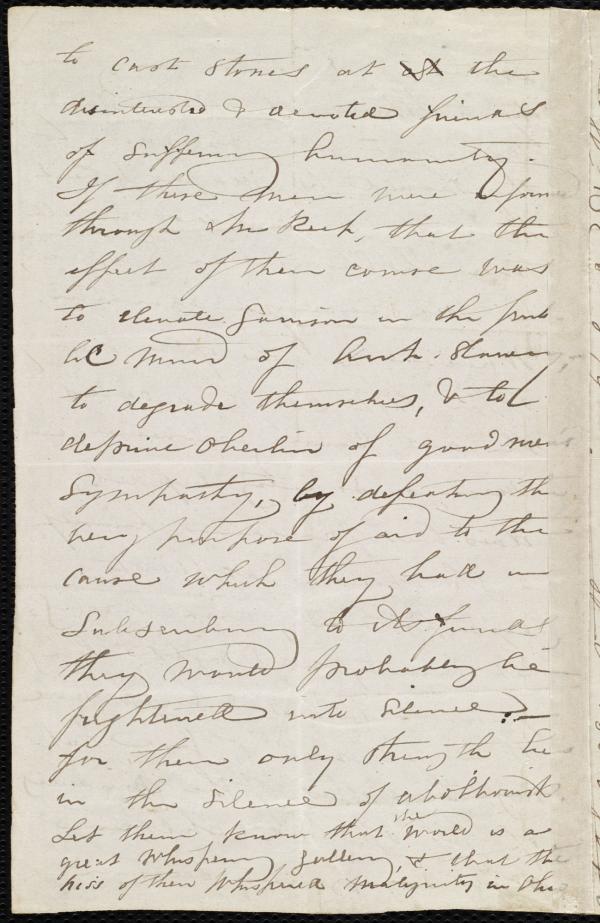 to cast stones at the
disinterested & devoted friends
of suffering humanity.
If these men were inform
through the Press, that the
effect of their course was
to elevate Garrison in the pub
lic mind of Anti-Slavery,
to degrade themselves, & to
deprive Oberlin of good men's
sympathy, by defeating the
very purpose of aid to the
cause which they had in
subscribing to its funds
they would probably be
frightened into silence —
for their only strength lie
in the silence of abolitionists
Let them know that the world is a
great whispering gallery, & that the
hiss of their whispered malignity in Ohio